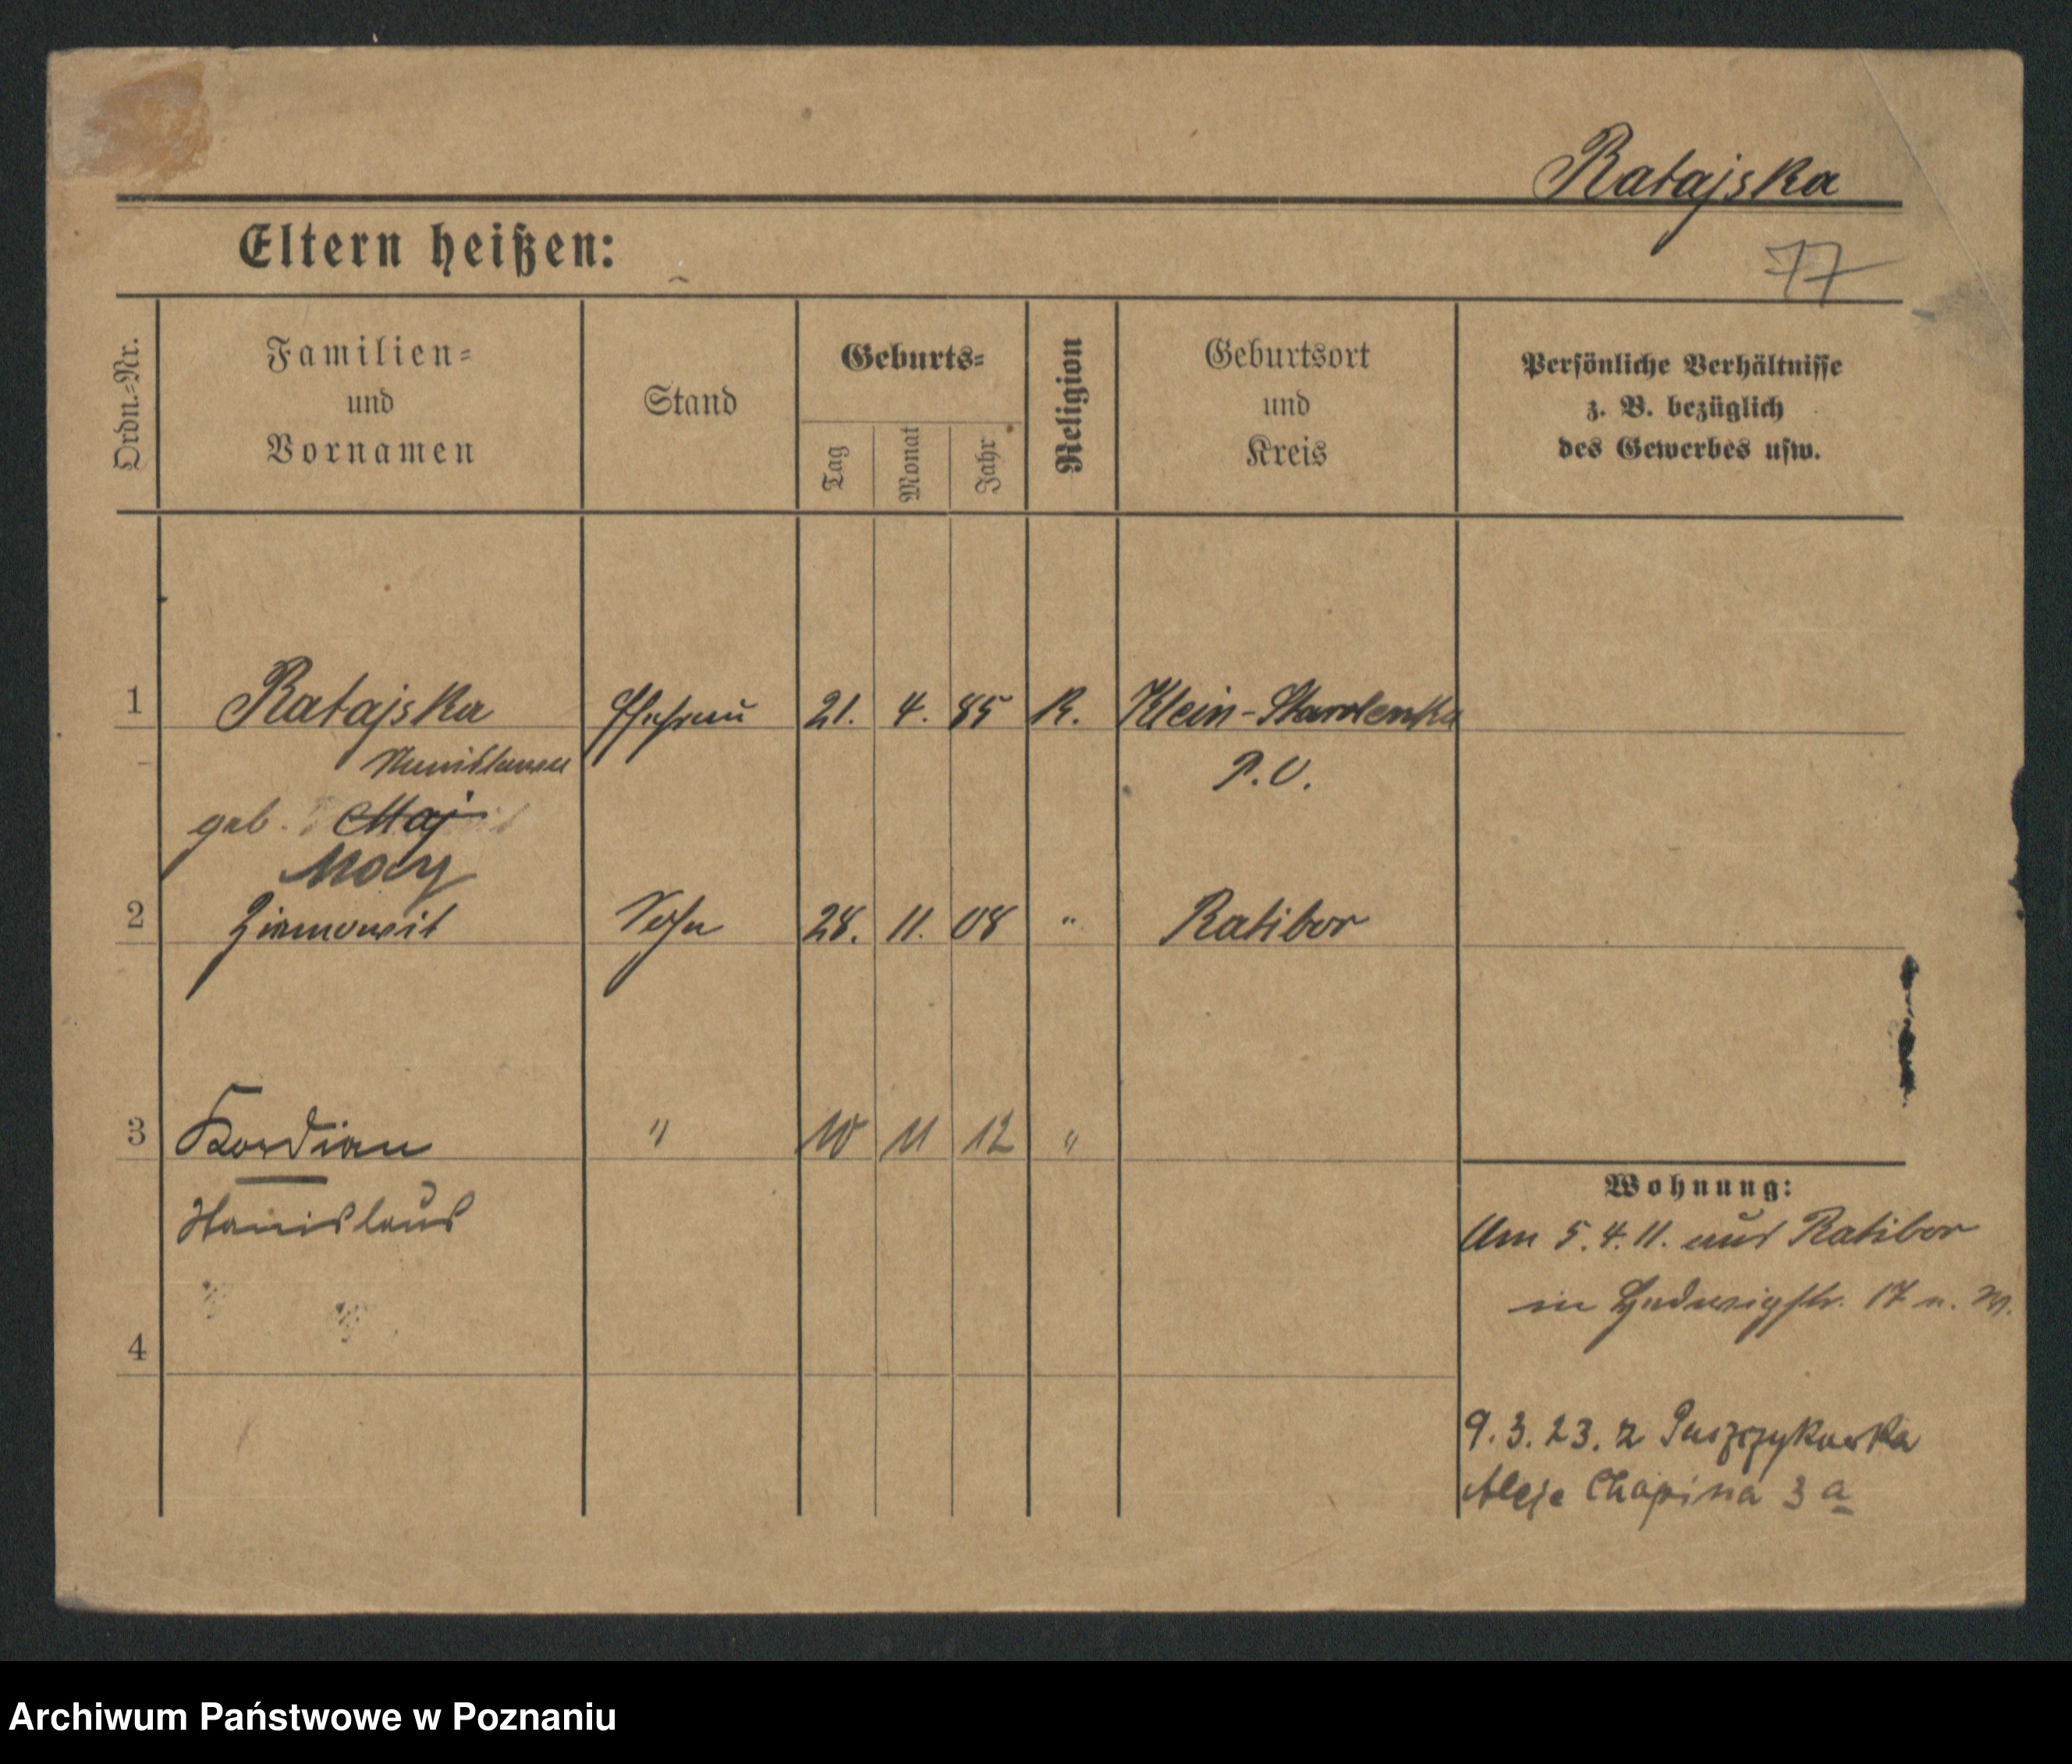 Ratajska
77
Eltern heißen:
Ordn.-Nr.
Familien-
und
Vornamen
Stand
Geburts-
Tag
Monat
Jahr
Religion
Geburtsort
und
Kreis
Persönliche Verhältnisse
z. B. bezüglich
des Gewerbes usw.
1 Ratajska Ehefrau 21. 4. 85 K. Klein-Starolenka
Stanislawa P. O.
geb. Maj
Moy
2 Ziemowit Sohn 28. 11. 08 " Ratibor
3 Kordian " 10 11 12 "
Stanislaus
4
Wohnung:
Am 5.4.11. aus Ratibor
in Hedwigstr. 17 n. W.
9.3.23. z Puszczykowka
Aleje Chopina 3 a
Archiwum Państwowe w Poznaniu